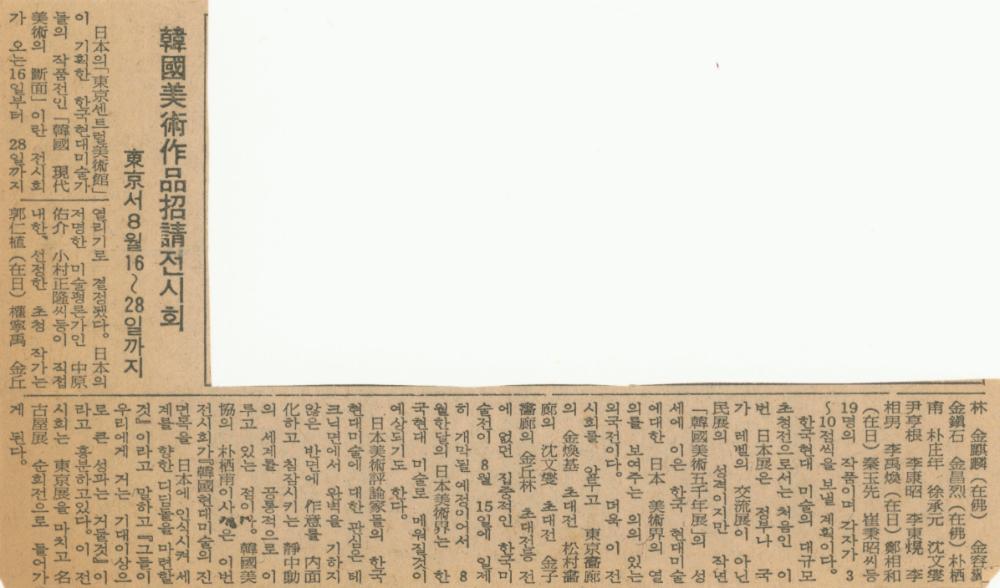 韓國美術作品招請전시회
東京서 8월16~28일까지
日本의「東京센트럴美術館」
이 기획한 한국현대미술가
들의 작품전인「韓國 現代
美術의 斷面」이란 전시회
가 오는16일부터 28일까지
열리기로 결정됐다。日本의
저명한 미술평론가인 中原
佑介 小村正隆씨등이 직접
내한、선정한 초청 작가는
郭仁植(在日) 權寧禹 金丘
林 金麒麟(在佛) 金容翼
金鎭石 金昌烈(在佛) 朴栖
甫 朴庄年 徐承元 沈文燮
尹亨根 李康昭 李東熀 李
相男 李禹煥(在日) 鄭相和
(在日) 秦玉先 崔秉昭씨등
19명의 작품이며 각자가 3
~10점씩을 보낼 계획이다。
한국현대 미술의 대규모
초청전으로서는 처음인 이
번 日本展은 정부나 국
가 레벨의 交流展이 아닌
民展의 성격이지만 작년
「韓國美術五千年展」의 성
세에 이은 한국 현대미술
에대한 日本 美術界의 열
의를 보여주는 의의 있는
외국전이다。더욱 이 전
시회를 앞두고 東京畵廊
의 金煥基 초대전 松村畵
廊의 沈文燮 초대전 金子
畵廊의 金丘林 초대전등 전
에 없던 집중적인 한국미
술전이 8월15일에 일제
히 개막될 예정이어서 8
월한달의 日本美術界는 한
국현대 미술로 메워질것이
예상되기도 한다。
日本美術評論家들의 한국
현대미술에 대한 관심은 테
크닉면에서 완벽을 기하지
않은 반면에 作意를 內面
化하고 침잠시키는 靜中動
의 세계를 공통적으로 이
루고 있는 점이다。韓國美
協의 朴栖甫이사은 이번
전시회가「韓國현대미술의 진
면목을 日本에 인식시켜 세
계를 향한 디딤돌을 마련할
것」이라고 말하고「그들이
우리에게 거는 기대이상으
로 큰 성과는 거둘것」이
라고 흥분하고있다。이 전
시회는 東京展을 마치고 名
古屋展 순회전으로 들어가
게 된다。